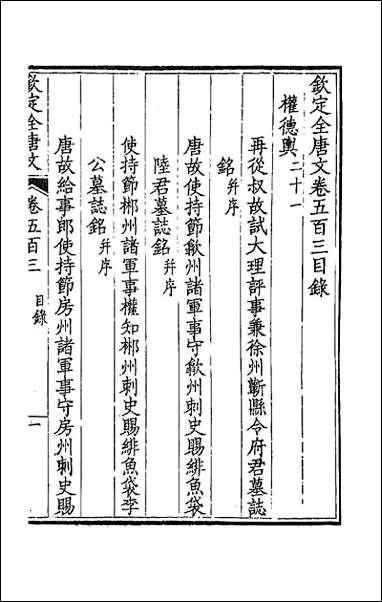 欽定全唐文卷五百三目錄
權德輿二十一
再從叔故試大理評事兼徐州蘄縣令府君墓誌
銘并序
唐故使持節歙州諸軍事守歙州刺史賜緋魚袋
陸君墓誌銘并序
使持節郴州諸軍事權知郴州刺史賜緋魚袋李
公墓誌銘并序
唐故給事郎使持節房州諸軍事守房州刺史賜
欽定全唐文 卷五百三 目錄 一